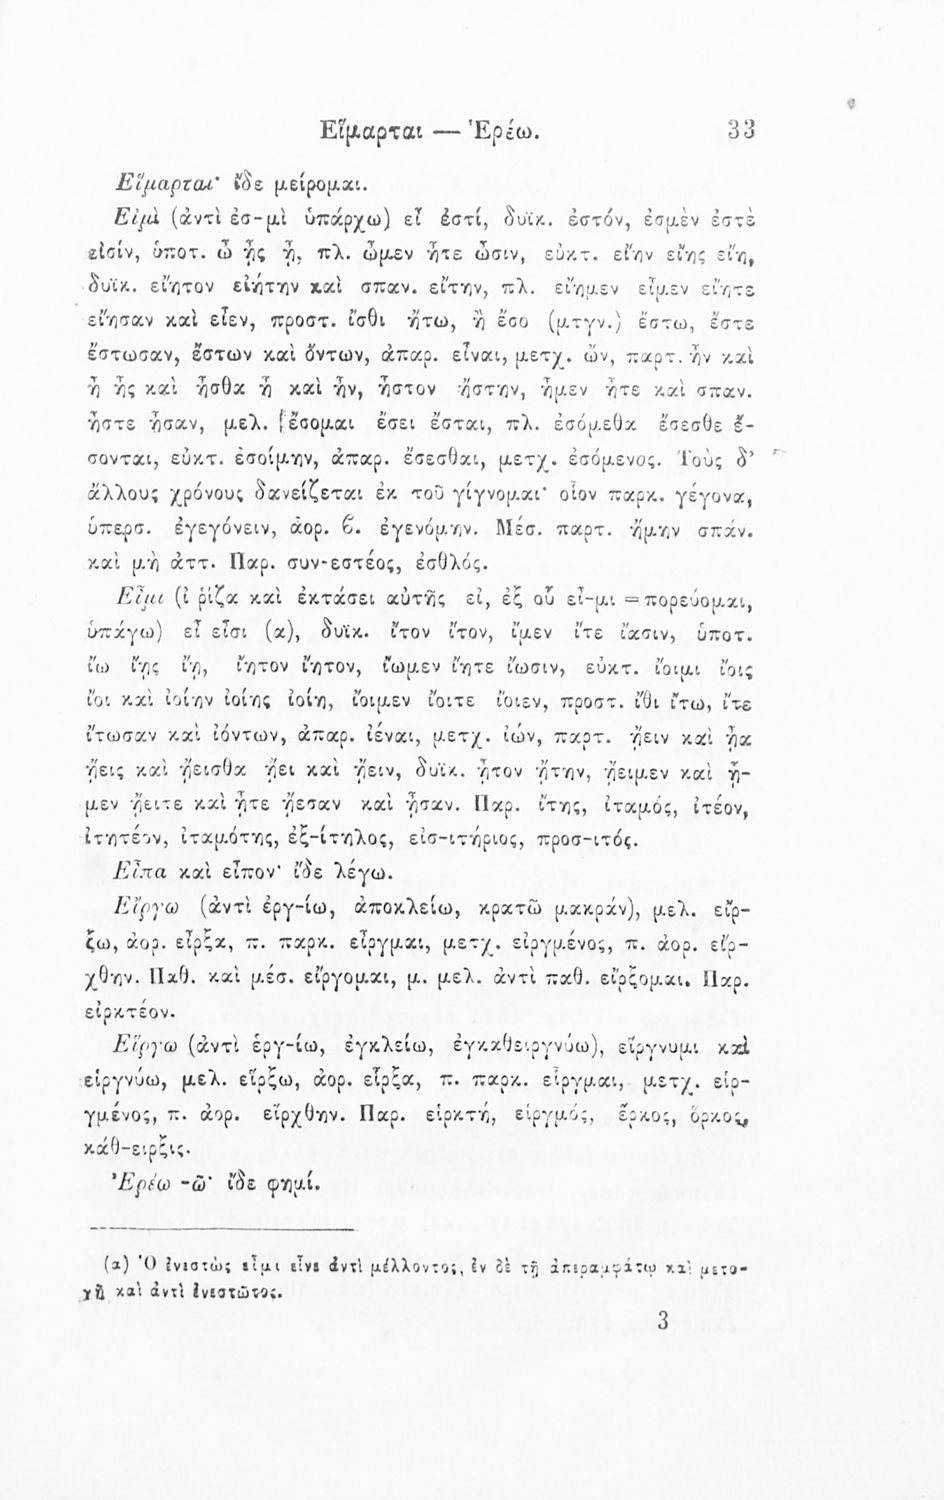 Εἵμαρται — Ἐρέω. 33
Εἵμαρται· ἴδε μείρομαι.
Εἰμὶ (ἀντὶ ἐσ-μὶ ὑπάρχω) εἶ ἐστί, δυϊκ. ἐστόν, ἐσμὲν ἐστὲ
εἰσίν, ὑποτ. ὦ ᾖς ᾖ, πλ. ὦμεν ἦτε ὦσιν, εὐκτ. εἴην εἴης εἴη,
δυϊκ. εἴητον εἰήτην καὶ σπαν. εἴτην, πλ. εἴημεν εἶμεν εἴητε
εἴησαν καὶ εἶεν, προστ. ἴσθι ἤτω, ἢ ἔσο (μτγν.) ἔστω, ἔστε
ἔστωσαν, ἔστων καὶ ὄντων, ἀπαρ. εἶναι, μετχ. ὤν, παρτ. ἦν καὶ
ἦ ἦς καὶ ἦσθα ἦ καὶ ἦν, ἦστον ἤστην, ἦμεν ἦτε καὶ σπαν.
ἦστε ἦσαν, μελ. ἔσομαι ἔσει ἔσται, πλ. ἐσόμεθα ἔσεσθε ἔ-
σονται, εὐκτ. ἐσοίμην, ἀπαρ. ἔσεσθαι, μετχ. ἐσόμενος. Τοὺς δ’
ἄλλους χρόνους δανείζεται ἐκ τοῦ γίγνομαι· οἷον παρκ. γέγονα,
ὑπερσ. ἐγεγόνειν, ἀορ. β. ἐγενόμην. Μέσ. παρτ. ἤμην σπάν.
καὶ μὴ ἀττ. Παρ. συν-εστέος, ἐσθλός.
Εἶμι (ἰ ῥίζα καὶ ἐκτάσει αὐτῆς εἰ, ἐξ οὗ εἶ-μι = πορεύομαι,
ὑπάγω) εἶ εἶσι (α), δυϊκ. ἴτον ἴτον, ἴμεν ἴτε ἴασιν, ὑποτ.
ἴω ἴῃς ἴῃ, ἴητον ἴητον, ἴωμεν ἴητε ἴωσιν, εὐκτ. ἴοιμι ἴοις
ἴοι καὶ ἰοίην ἰοίης ἰοίη, ἴοιμεν ἴοιτε ἴοιεν, προστ. ἴθι ἴτω, ἴτε
ἴτωσαν καὶ ἰόντων, ἀπαρ. ἰέναι, μετχ. ἰών, παρτ. ᾔειν καὶ ᾖα
ᾔεις καὶ ᾔεισθα ᾔει καὶ ᾔειν, δυϊκ. ᾖτον ᾔτην, ᾔειμεν καὶ ᾖ-
μεν ᾔειτε καὶ ᾖτε ᾔεσαν καὶ ᾖσαν. Παρ. ἴτης, ἰταμός, ἰτέον,
ἰτητέον, ἰταμότης, ἐξ-ίτηλος, εἰσ-ιτήριος, προσ-ιτός.
Εἶπα καὶ εἶπον· ἴδε λέγω.
Εἴργω (ἀντὶ ἐργ-ίω, ἀποκλείω, κρατῶ μακράν), μελ. εἴρ-
ξω, ἀορ. εἶρξα, π. παρκ. εἶργμαι, μετχ. εἰργμένος, π. ἀορ. εἴρ-
χθην. Παθ. καὶ μέσ. εἴργομαι, μ. μελ. ἀντὶ παθ. εἴρξομαι. Παρ.
εἰρκτέον.
Εἵργω (ἀντὶ ἑργ-ίω, ἐγκλείω, ἐγκαθειργνύω), εἵργνυμι καὶ
εἱργνύω, μελ. εἵρξω, ἀορ. εἷρξα, π. παρκ. εἷργμαι, μετχ. εἱρ-
γμένος, π. ἀορ. εἵρχθην. Παρ. εἱρκτή, εἱργμός, ἕρκος, ὅρκος,
κάθ-ειρξις.
Ἐρέω -ῶ· ἴδε φημί.
(α) Ὁ ἐνεστὼς εἶμι εἶνε ἀντὶ μέλλοντος, ἐν δὲ τῇ ἀπαρεμφάτῳ καὶ μετο-
χῇ καὶ ἀντὶ ἐνεστῶτος.
3